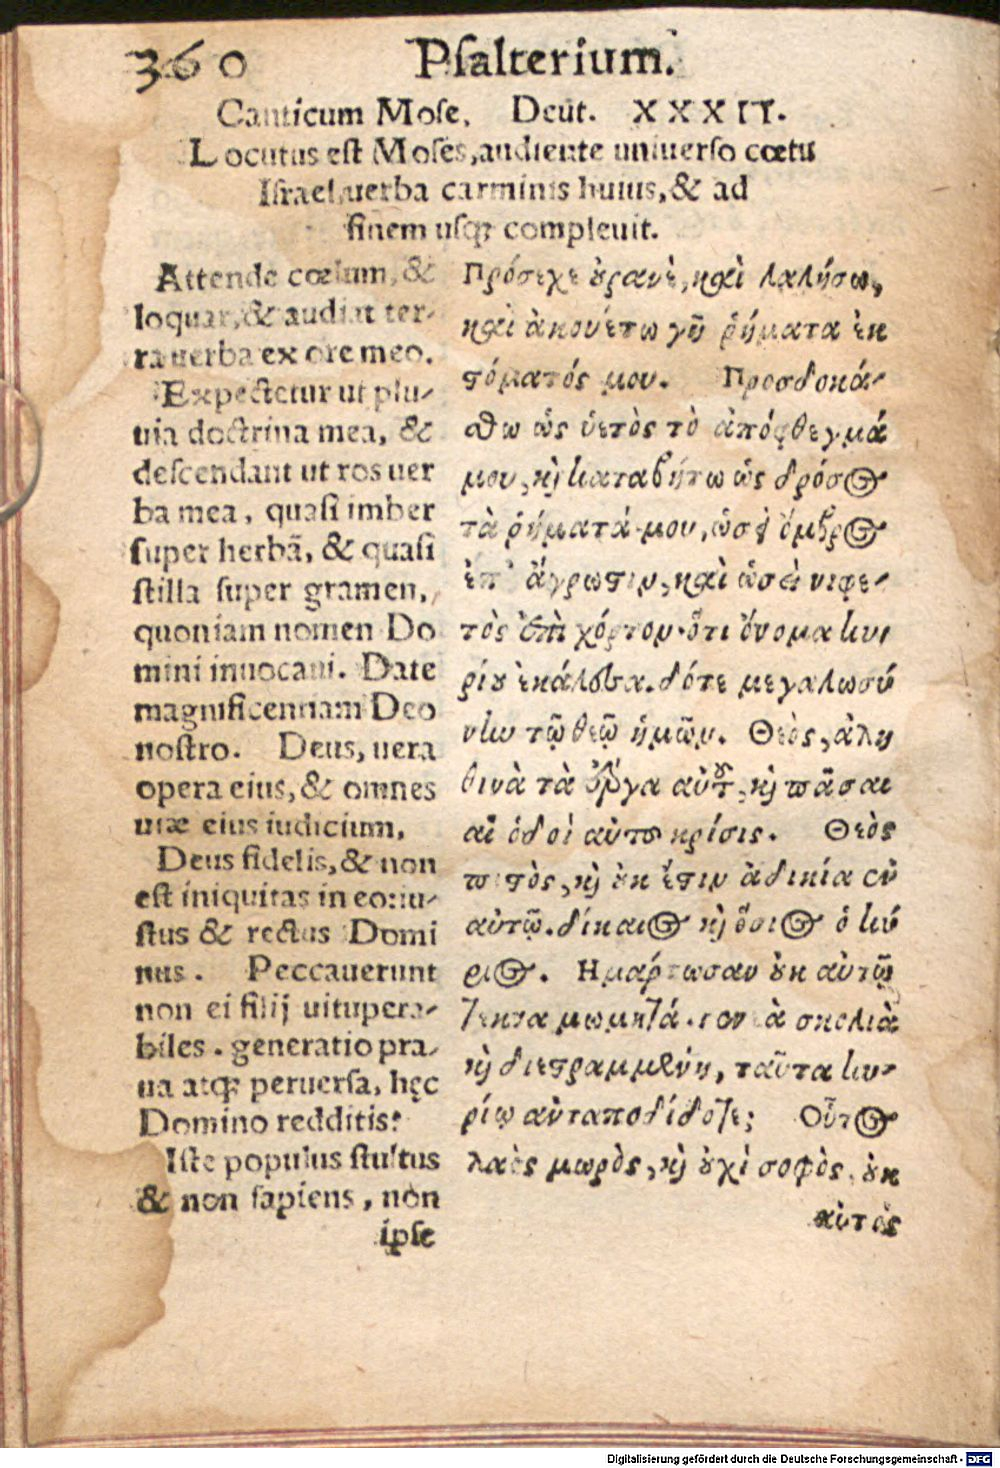 360 Psalterium.
Canticum Mose. Deut. XXXII.
Locutus est Moses, audiente uniuerso cœtu
Israel, uerba carminis huius, & ad
finem usq; compleuit.
Attende cœlum, &
loquar, & audiat ter-
ra uerba ex ore meo.
Expectetur ut plu-
uia doctrina mea, &
descendant ut ros uer
ba mea, quasi imber
super herbā, & quasi
stilla super gramen,
quoniam nomen Do
mini inuocaui. Date
magnificentiam Deo
nostro. Deus, uera
opera eius, & omnes
uiæ eius iudicium.
Deus fidelis, & non
est iniquitas in eo: iu-
stus & rectus Domi
nus. Peccauerunt
non ei filij uitupera-
biles. generatio pra-
ua atq; peruersa, hęc
Domino redditis?
Iste populus stultus
& non sapiens, non
ipse
Πρόσεχε ȣρανὲ, καὶ λαλήσω,
καὶ ἀκουέτω γῆ ῥήματα ἐκ
στόματός μου. Προσδοκά-
σθω ὡς ὑετὸς τὸ ἀπόφθεγμά
μου, καὶ καταβήτω ὡς δρόσος
τὰ ῥήματά μου, ὡσεὶ ὄμβρος
ἐπ' ἄγρωστιν, καὶ ὡσεὶ νιφε-
τὸς ἐπὶ χόρτον. ὅτι ὄνομα κυ
ρίȣ ἐκάλεσα. δότε μεγαλωσύ
νην τῷ θεῷ ἡμῶν. Θεὸς, ἀλη
θινὰ τὰ ἔργα αὐτȣ͂, καὶ πᾶσαι
αἱ ὁδοὶ αὐτȣ κρίσις. Θεὸς
πιστὸς, καὶ ȣκ ἔστιν ἀδικία ἐν
αὐτῷ. δίκαιος καὶ ὅσιος ὁ κύ
ριος. Ημάρτωσαν ȣκ αὐτῷ
τέκνα μωμητά. γενεὰ σκολιὰ
καὶ διεστραμμένη, ταῦτα κυ-
ρίῳ ἀνταποδίδοτε; Οὗτος
λαὸς μωρὸς, καὶ ȣχὶ σοφὸς, ȣκ
αὐτὸς
Digitalisierung gefördert durch die Deutsche Forschungsgemeinschaft - DFG